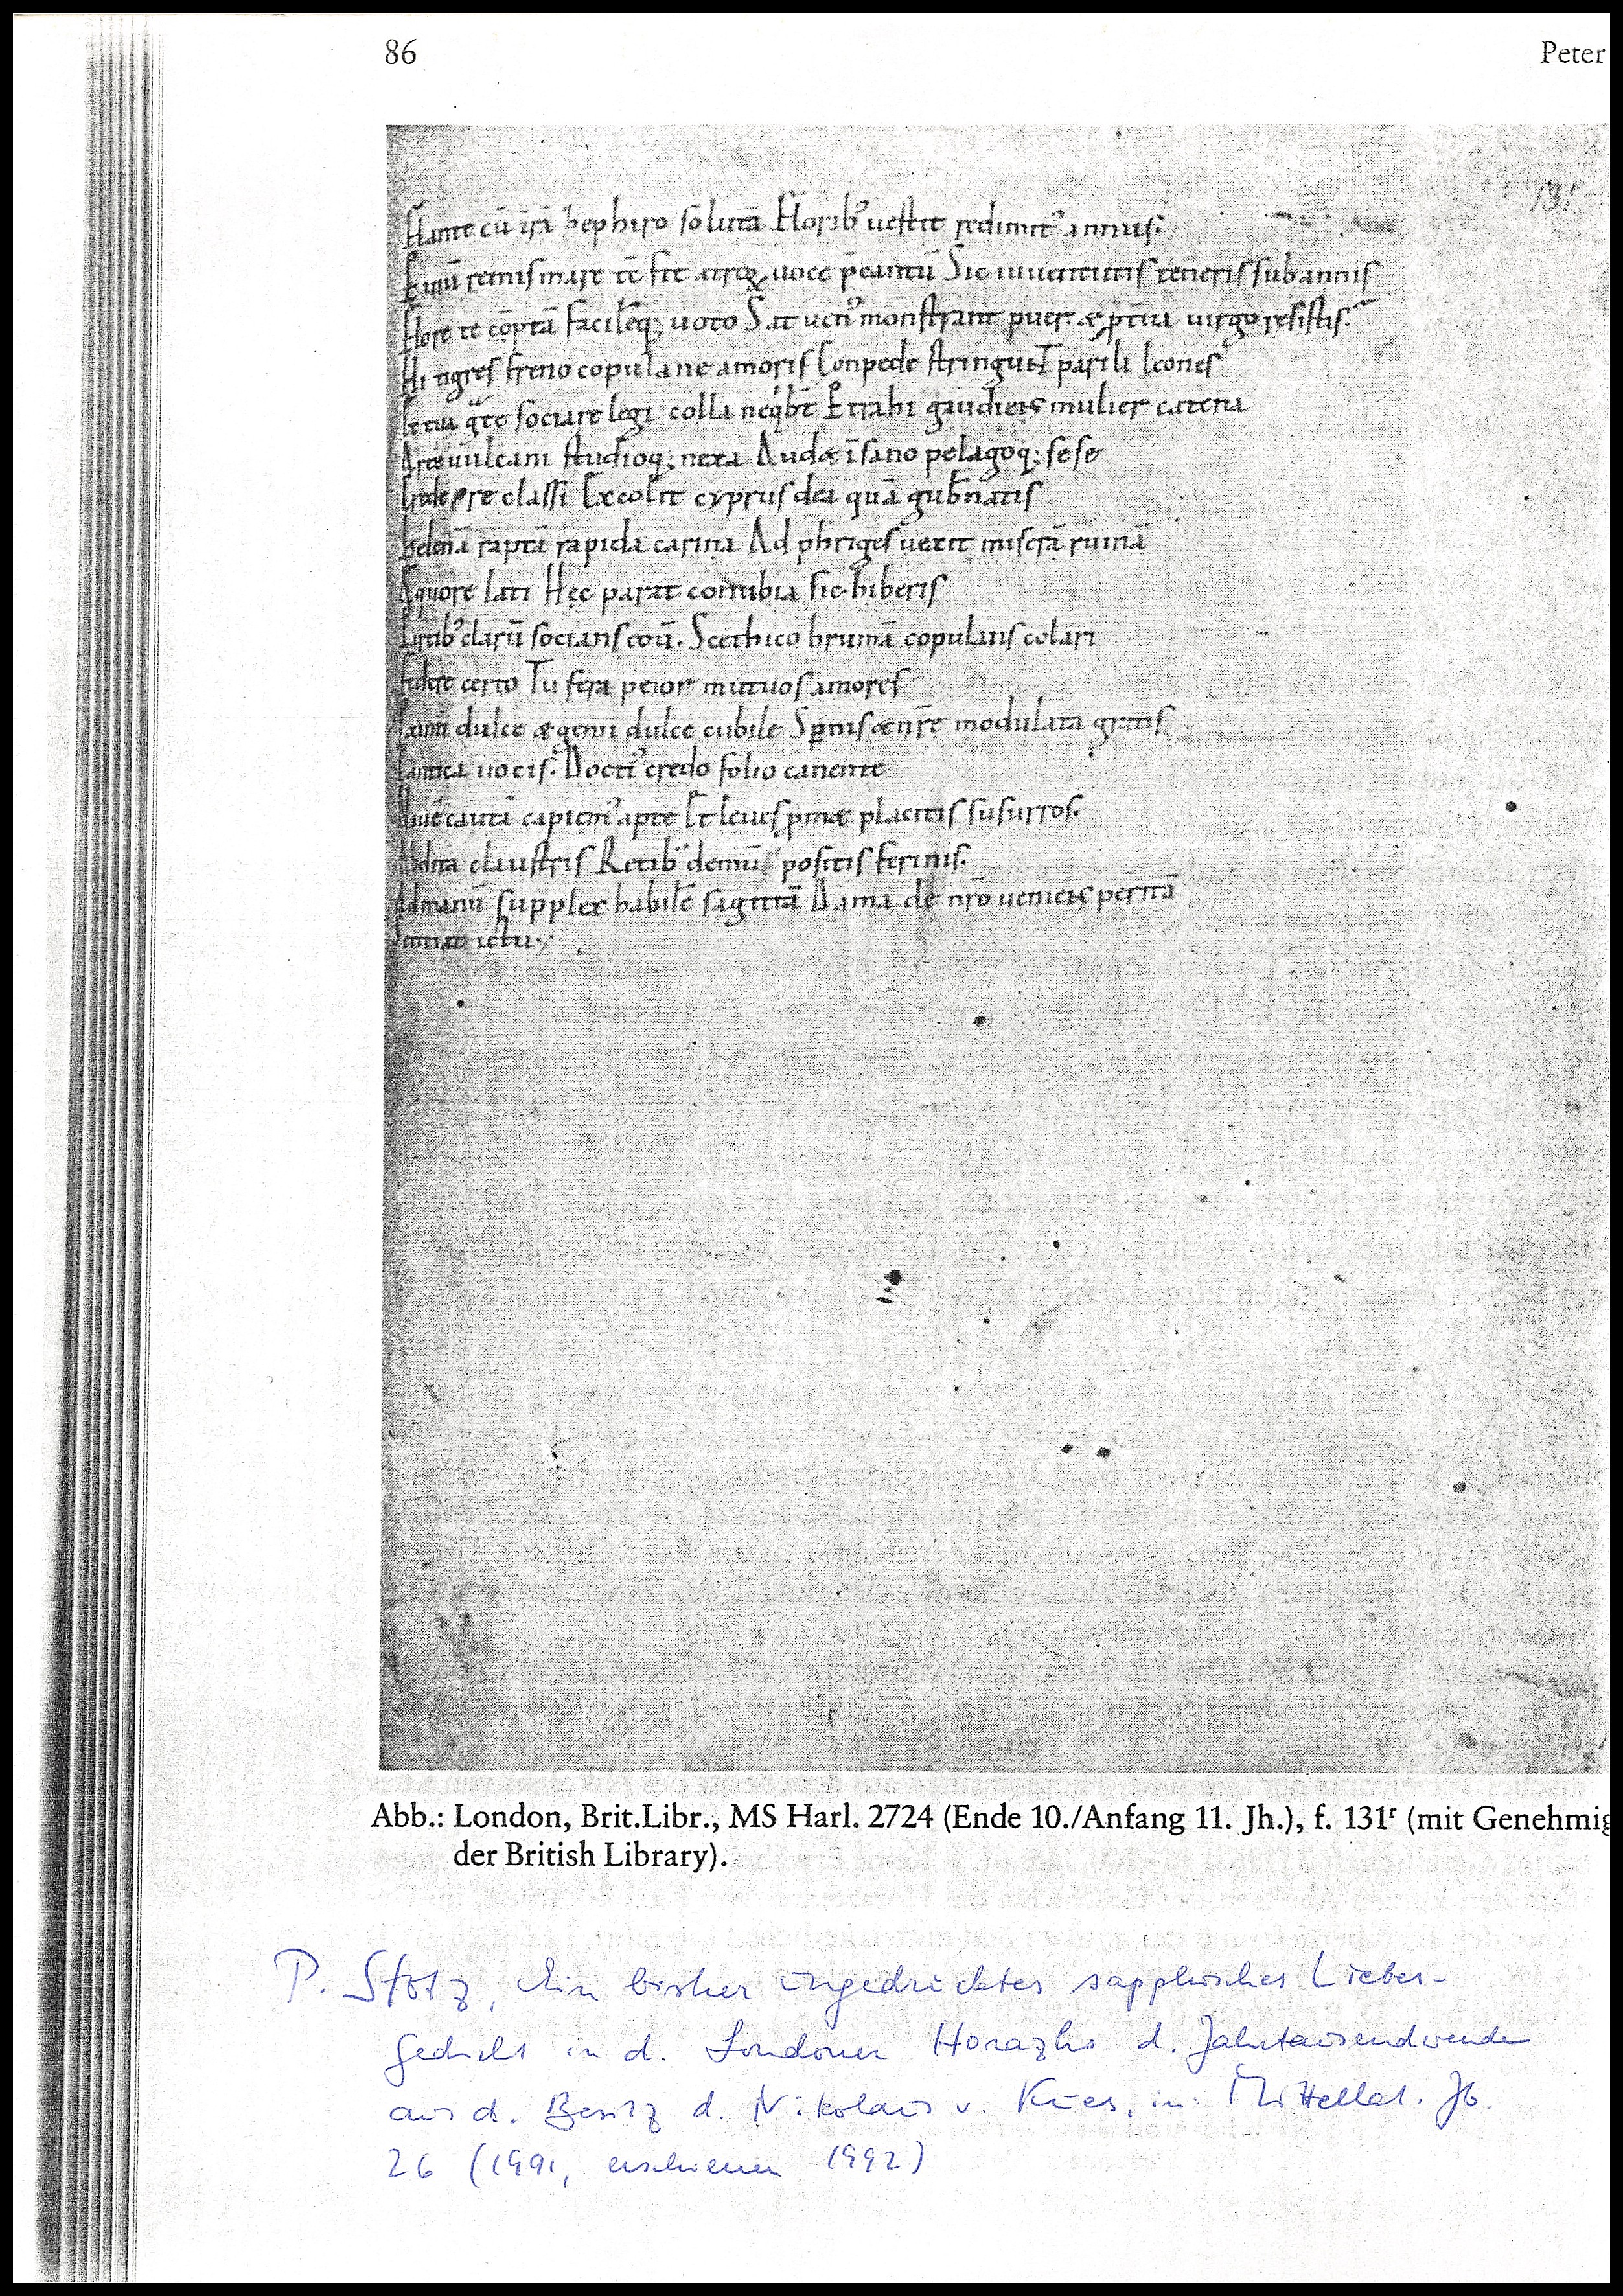 86
Peter
131
Flante cū trā hephiro solutā Floribꝰ uestit redimitꝰ annus.
remis mare tē fit atrox uoce p̄cantū Sic iuuentutis teneris sub annis
Flore te cōptā facilēq; uoto Sat uenꝰ monstrant puer & p̄tiua uirgo resistis.
Hi tigres freno copulane amoris Conpede stringunt parili leones
sociare legi colla Et trahi gaudens mulier catena
Arte uulcani studioq; nexa Audæ īsano pelagoq; sese
classi Excolit cyprus dea quā gub̄natis
helenā raptā rapida carina Ad phriges uexit miserā ruinā
Aquore lati Hęc parat conubia sic hiberis
clarū socians eoū. Scethico brumā copulans colari
certo Tu fera peior mutuos amores
dulce & genu dulce cubile Sp̱nis & nr̄e modulata gratis
Cantica uocis. Doctiꝰ credo folio canente
Auē cautā capiemꝰ apte Et leues placitis susurros.
Abdita claustris Retibꝰ demū positis ferinis.
Ad manū supplex habilē sagittā Dama de nr̄o ueniens peritā
Sentiat ictu
Abb.: London, Brit.Libr., MS Harl. 2724 (Ende 10./Anfang 11. Jh.), f. 131ʳ (mit Genehmig
der British Library).
P. Stotz, Ein bisher ungedrucktes sapphisches Liebes-
gedicht in d. Londoner Horazhs. d. Jahrtausendwende
aus d. Besitz d. Nikolaus v. Kues, in: Mittellat. Jb.
26 (1991, erschienen 1992)